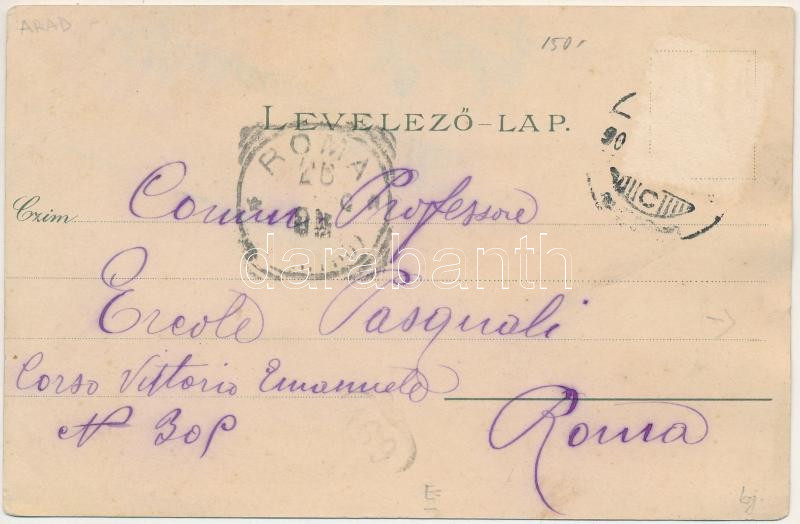 ARAD
150.
LEVELEZŐ-LAP.
ROMA
Czim
Comm Professore
Ercole Pasquali
Corso Vittorio Emanuele
N 308
Roma
darabanth
E=